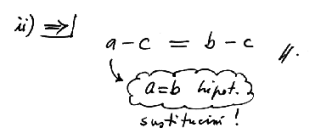 ii) ⇒|
a - c = b - c //.
a=b hipot.
sustitución!